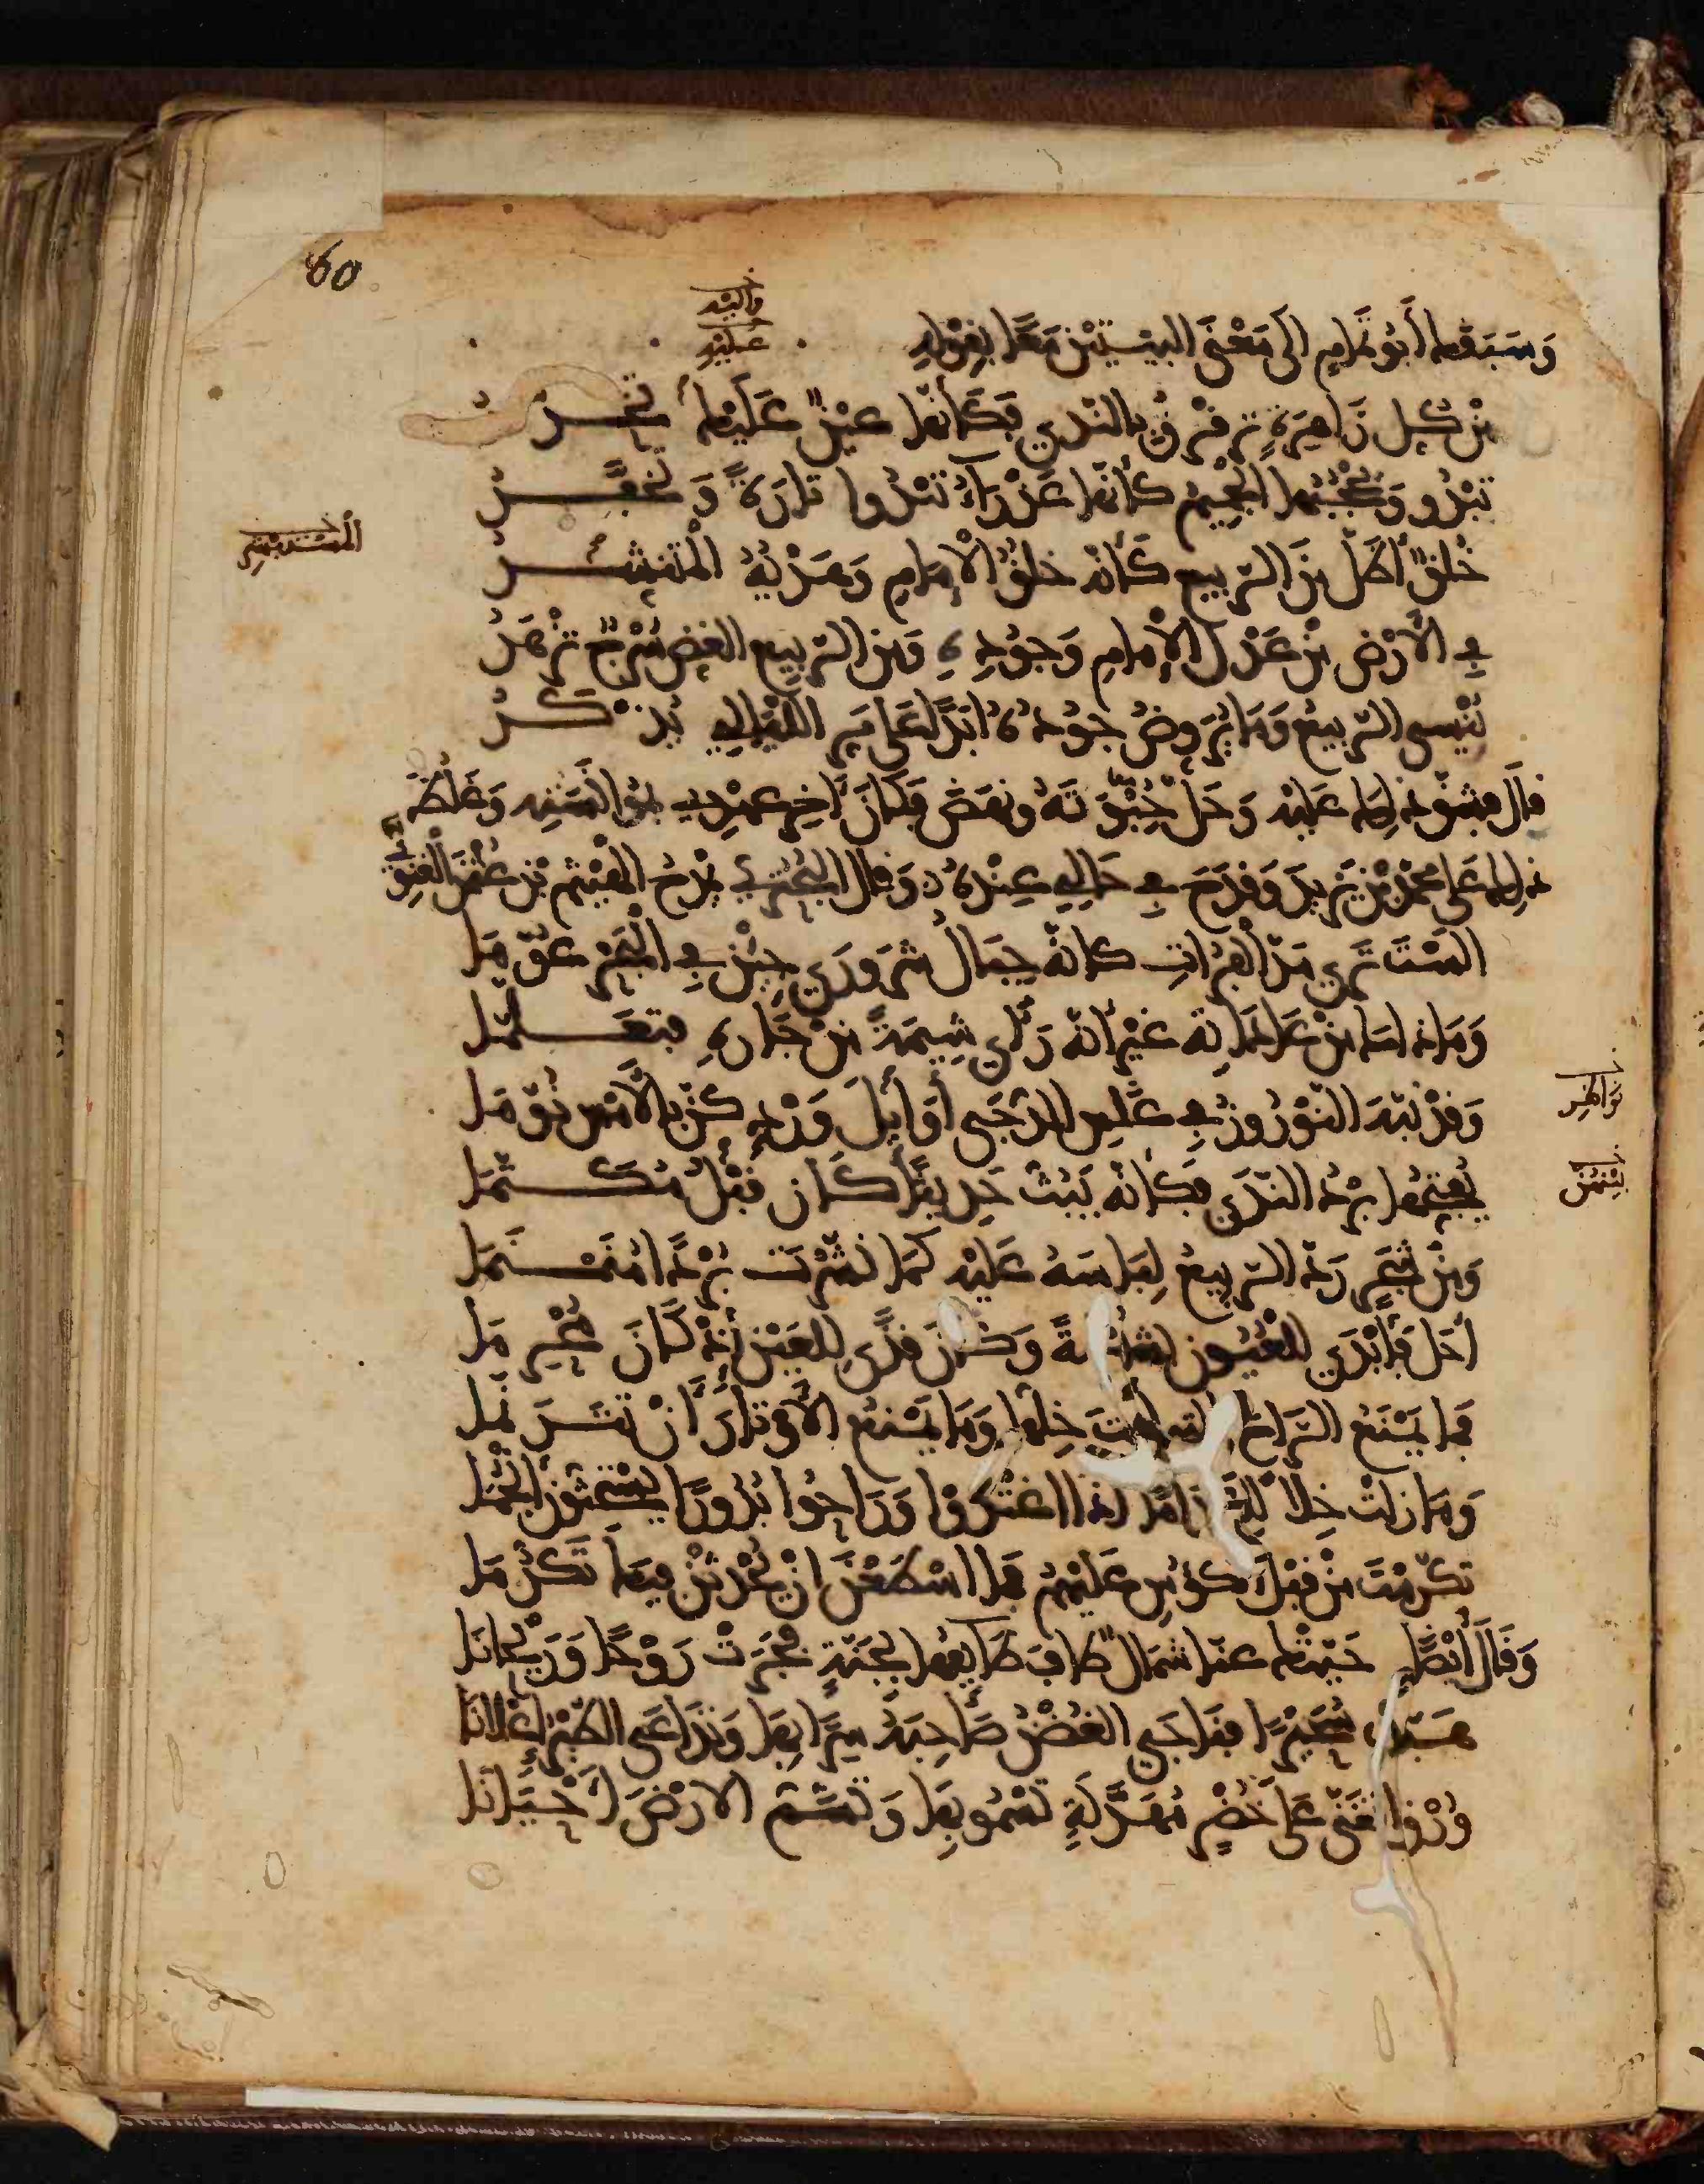 60
خـ إليه
خـ عليه
وَسَبَقَهُ أَبُو تَمَّامٍ إلى مَعْنَى البَيْتَيْنِ مَعًا بِقَوْلِهِ
مِنْ كلِّ زَاهِرَةٍ تَرَقْرَقُ بالنَّدَى فَكَأَنَّها عَيْنٌ عَلَيْهِ تَحَدَّرُ
تَبْدُو وَيَحْجُبُها الجَمِيمُ كأنّها عَذْرَاءُ تَبْدُوا تارَةً وَتَخَفَّرُ
خُلُقٌ أَطَلَّ مِنَ الرَّبِيعِ كَأَنَّهُ خُلُقُ الْإِمَامِ وَهَدْيُهُ الْمُتَنَشِّرُ
فِي الأَرْضِ مِنْ عَدْلِ الإِمَامِ وَجُودِهِ وَمِنَ الرَّبِيعِ الغَضِّ سُرْجٌ تَزْهَرُ
يُنْسَى الرَّبِيعُ وَمَا يُرَوِّضُ جُودُهُ أَبَدًا عَلَى مَرِّ اللَّيَالِي يُذْكَرُ
ذلِكَ عَلَى مُحَمَّدِ بْنِ يَزِيدَ وَقَدَحَ فِي حَالِي عِنْدَهُ وَقال البُحْتُرِيّ يَمْدَحُ الهَيْثَمَ بْنَ عُثْمَنَ الْغَنَوِيّ
أَلَسْتَ تَرَى مَدَّ الفُرَاتِ كأنّهُ جِبَالُ شَرَوْرَى جِئْنَ فِي الْبَحْرِ عُوَّمَا
وَمَا ذاكَ مِنْ عَادَاتِهِ غَيْرَ أَنَّهُ رَأَى شِيمَةً مِنْ جَارِهِ فَتَعَلَّمَا
وَقَدْ نَبَّهَ النَّوْرُوزُ فِي غَلَسِ الدُّجَى أَوَائِلَ وَرْدٍ كُنَّ بِالأَمْسِ نُوَّمَا
يُفَتِّحُها بَرْدُ النَّدَى فَكَأَنَّهُ يَبُثُّ حَدِيثًا كَانَ قَبْلُ مُكَتَّمَا
وَمِنْ شَجَرٍ رَدَّ الرَّبِيعُ لِبَاسَهُ عَلَيْهِ كَمَا نَشَّرْتَ بُرْدًا مُنَمْنَمَا
أَحَلَّ فَأَبْدَى لِلْعُيُونِ بَشَاشَةً وَكَانَ قَذًى لِلْعَيْنِ إِذْ كَانَ مُحْرِمَا
فَما يَمْنَعُ الرَّاحَ الَّتِي أَنْتَ خِلُّها وَمَا يَمْنَعُ الأَوْتَارَ أَنْ تَتَرَنَّمَا
وَمَا زِلْتَ خِلًّا لِلنَّدَامَى إذا اغْتَدَوْا وَرَاحُوا بُدُورًا يَسْتَحِثُّونَ أَنْجُمَا
تَكَرَّمْتَ مِنْ قَبْلِ الكُؤُوسِ عَلَيْهِمُ فَمَا اسْطَعْنَ أَنْ يُحْدِثْنَ فِيكَ تَكَرُّمَا
وَقَالَ أَيْضًا حَيَّتْكَ عَنَّا شَمَالٌ طافَ طَائِفُها بِجَنَّةٍ فَجَرَتْ رَوْحًا وَرَيْحَانَا
هَبَّتْ سُحَيْرًا فَنَاجَى الغُصْنُ صَاحِبَهُ سِرًّا بِها وَتَدَاعَى الطَّيْرُ إِعْلَانَا
وُرْقٌ تَغَنَّى عَلَى خُضْرٍ مُهَدَّلَةٍ تَسْمُو بِها وَتَشُمُّ الأَرْضَ أَحْيَانَا